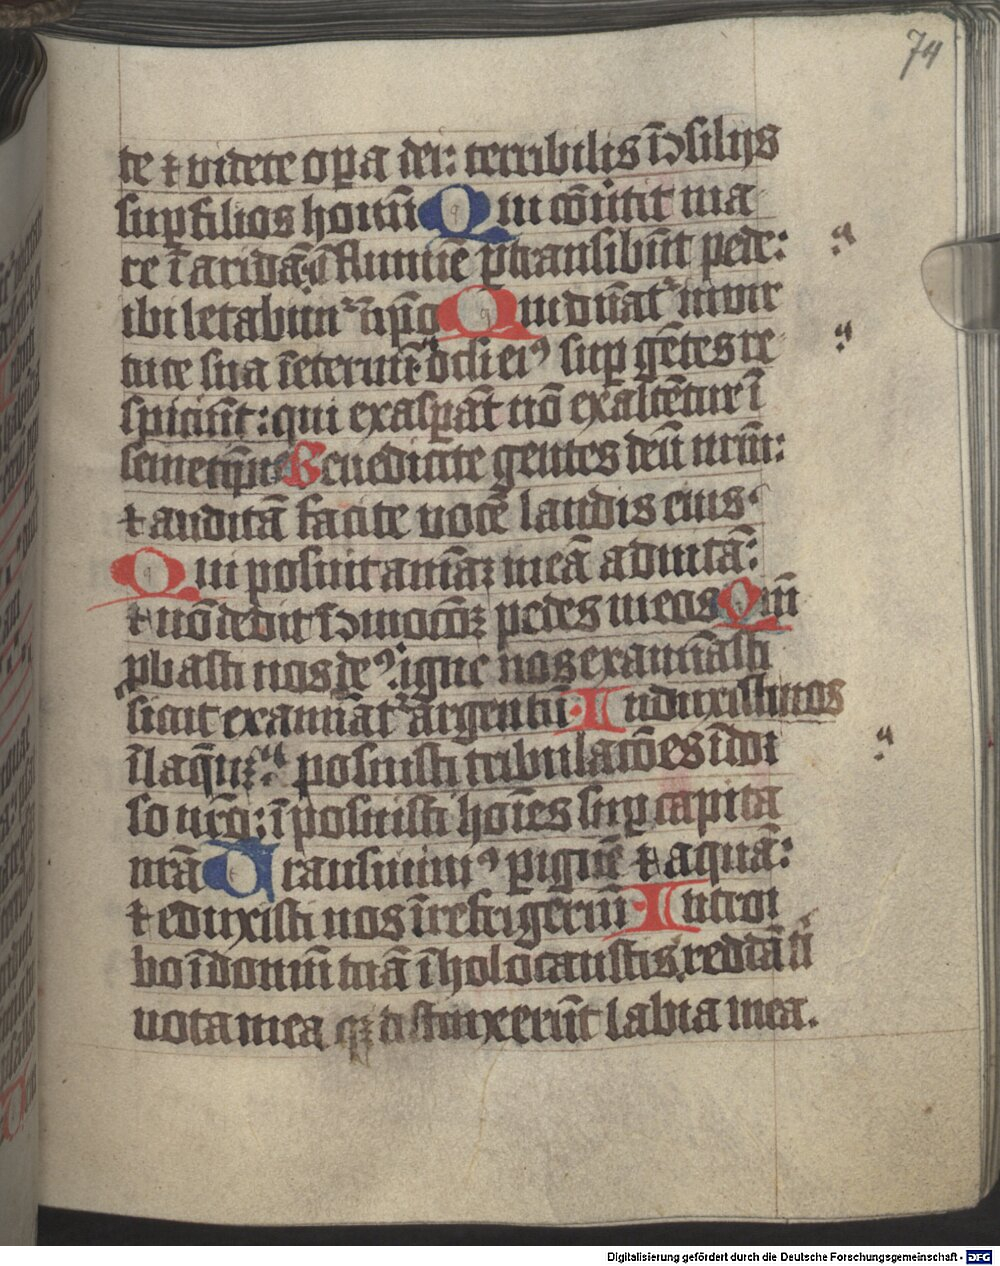 74
te ⁊ videte opa dei: terribilis ī ↄsilijs
sup filios homī Qui cōūtit ma
re ī aridā ī flumīe ptransibūt pede:
ibi letabimr̄ ī ipō Qui dn̄at̄ ī uir
tute sua ī eternū ocli ei⁹ sup gētes re
spiciūt: qui exaspāt nō exaltētur ī
semetip̄is Benedicite gentes deū nrm̄:
⁊ auditā facite vocē laudis eius.
Qui posuit aīaȝ meā ad uitā:
⁊ nō dedit ī ↄmotōȝ pedes meos Qm̄
pbasti nos de⁹: igne nos examīasti
sicut examīat̄ argentū Induxisti nos
ī laq̄uȝ: posuisti tribulatōes ī dor
so nrō: īposuisti hoīes sup capita
nrā Transiuim⁹ p ignē ⁊ aquā:
⁊ eduxisti nos ī refrigeriū Introi
bo ī domū tuā ī holocaustis reddā ti
uota mea q̄ distinxerūt labia mea.
Digitalisierung gefördert durch die Deutsche Forschungsgemeinschaft - DFG